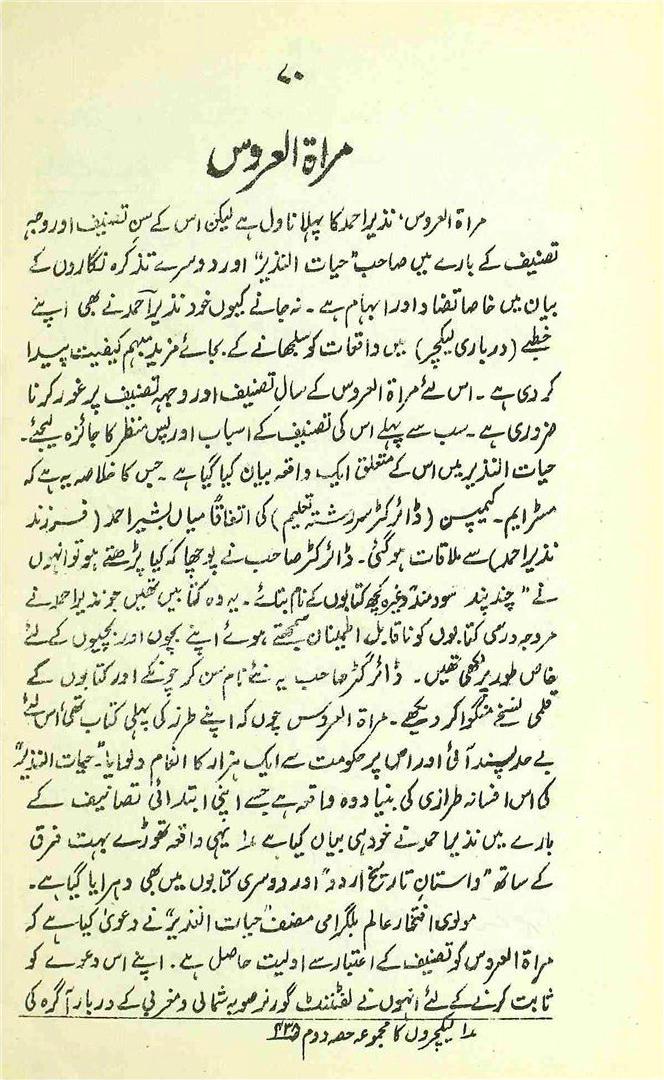 ۷۰
مراۃ العروس
مراۃ العروس، نذیر احمد کا پہلا ناول ہے لیکن اس کے سنِ تصنیف اور وجہ
تصنیف کے بارے میں صاحب "حیات النذیر" اور دوسرے تذکرہ نگاروں کے
بیان میں خاصا تضاد اور ابہام ہے۔ نہ جانے کیوں خود نذیر احمد نے بھی اپنے
خطبے (درباری لیکچر) میں واقعات کو سلجھانے کے بجائے مزید مبہم کیفیت پیدا
کر دی ہے۔ اس لئے مراۃ العروس کے سالِ تصنیف اور وجہہ تصنیف پر غور کرنا
ضروری ہے۔ سب سے پہلے اس کی تصنیف کے اسباب اور پس منظر کا جائزہ لیجئے۔
حیات النذیر میں اس کے متعلق ایک واقعہ بیان کیا گیا ہے۔ جس کا خلاصہ یہ ہے کہ
مسٹر ایم۔ کیمپسن (ڈائرکٹر سررشتہ تعلیم) کی اتفاقاً میاں بشیر احمد (فرزند
نذیر احمد) سے ملاقات ہو گئی۔ ڈائرکٹر صاحب نے پوچھا کہ کیا پڑھتے ہو تو انہوں
نے "چند پند سودمند" وغیرہ کچھ کتابوں کے نام بتائے۔ یہ وہ کتابیں تھیں جو نذیر احمد نے
مروجہ درسی کتابوں کو ناقابل اطمینان سمجھتے ہوئے اپنے بچوں اور بچیوں کے لئے
خاص طور پر لکھی تھیں۔ ڈائرکٹر صاحب یہ نئے نام سن کر چونکے اور کتابوں کے
قلمی نسخے منگوا کر دیکھے۔ مراۃ العروس چوں کہ اپنے طرز کی پہلی کتاب تھی اس لئے
بے حد پسند آئی اور اس پر حکومت سے ایک ہزار کا انعام دلوایا۔ "حیات النذیر"
کی اس افسانہ طرازی کی بنیاد وہ واقعہ ہے جسے اپنی ابتدائی تصانیف کے
بارے میں نذیر احمد نے خود ہی بیان کیا ہے ۱؎ یہی واقعہ تھوڑے بہت فرق
کے ساتھ "داستانِ تاریخ اردو" اور دوسری کتابوں میں بھی دہرایا گیا ہے۔
مولوی افتخار عالم بلگرامی مصنف "حیات النذیر" نے دعویٰ کیا ہے کہ
مراۃ العروس کو تصنیف کے اعتبار سے اولیت حاصل ہے۔ اپنے اس دعوے کو
ثابت کرنے کے لئے انہوں نے لفٹننٹ گورنر صوبہ شمالی و مغربی کے دربار آگرہ کی
۱؎ لیکچروں کا مجموعہ حصہ دوم